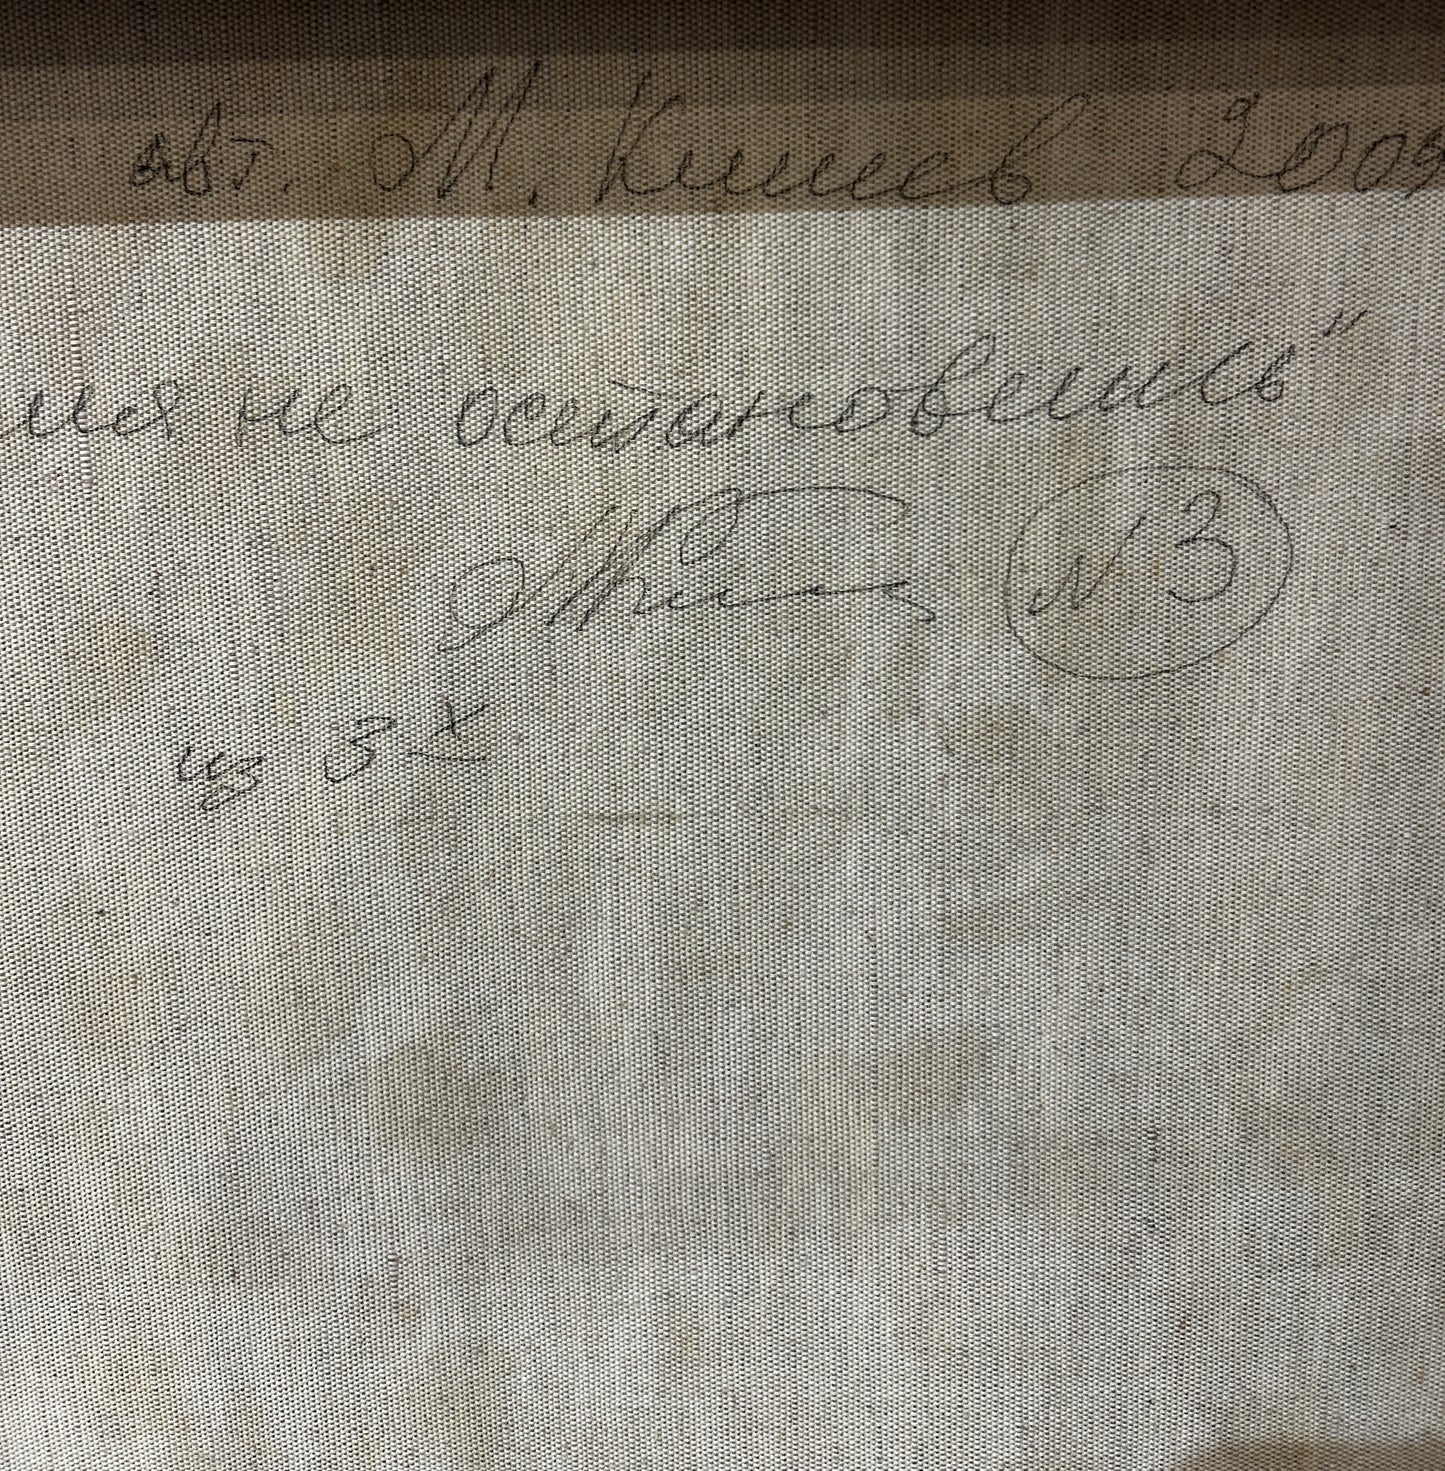 авт. М. Кишев 2009
мя не остановилось"
№3
из 3х